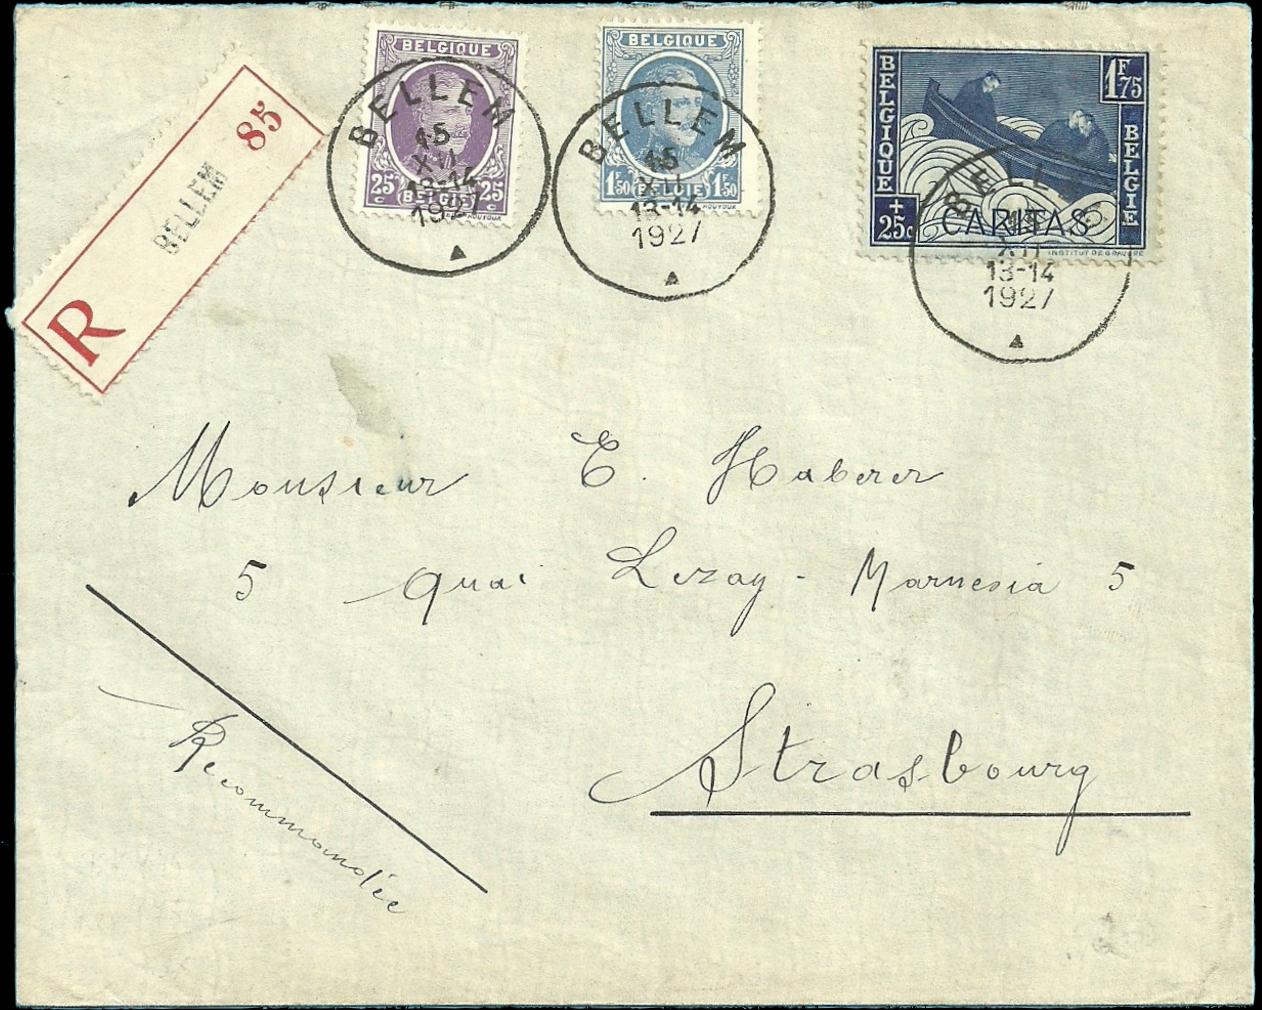 R BELLEM 85
BELGIQUE
25c 25c
BELGIË
BELLEM
15
XII
13-14
1927
BELGIQUE
1F50 1F50
BELGIË
BELLEM
15
XII
13-14
1927
BELGIQUE
1F75
BELGIE
+
25c
CARITAS
INSTITUT DE GRAVURE
BELLEM
15
XII
13-14
1927
Monsieur E. Haberer
5 Quai Lezay - Marnesia 5
Strasbourg
Recommandée